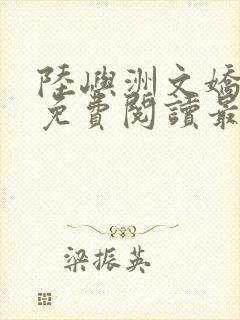 陸嶼洲文嬌
免費閱讀最
梁振英